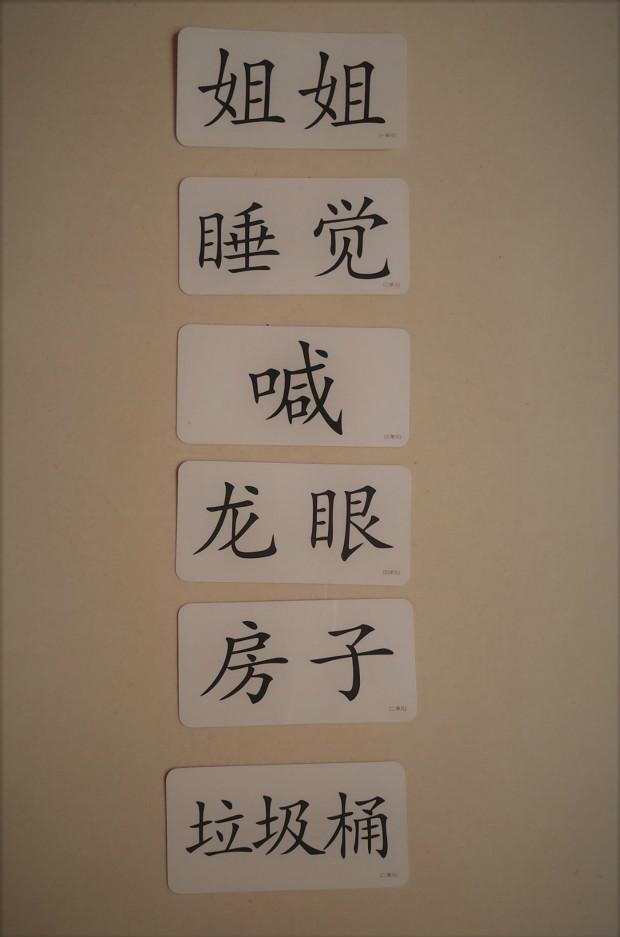 姐姐
睡觉
喊
龙眼
房子
垃圾桶